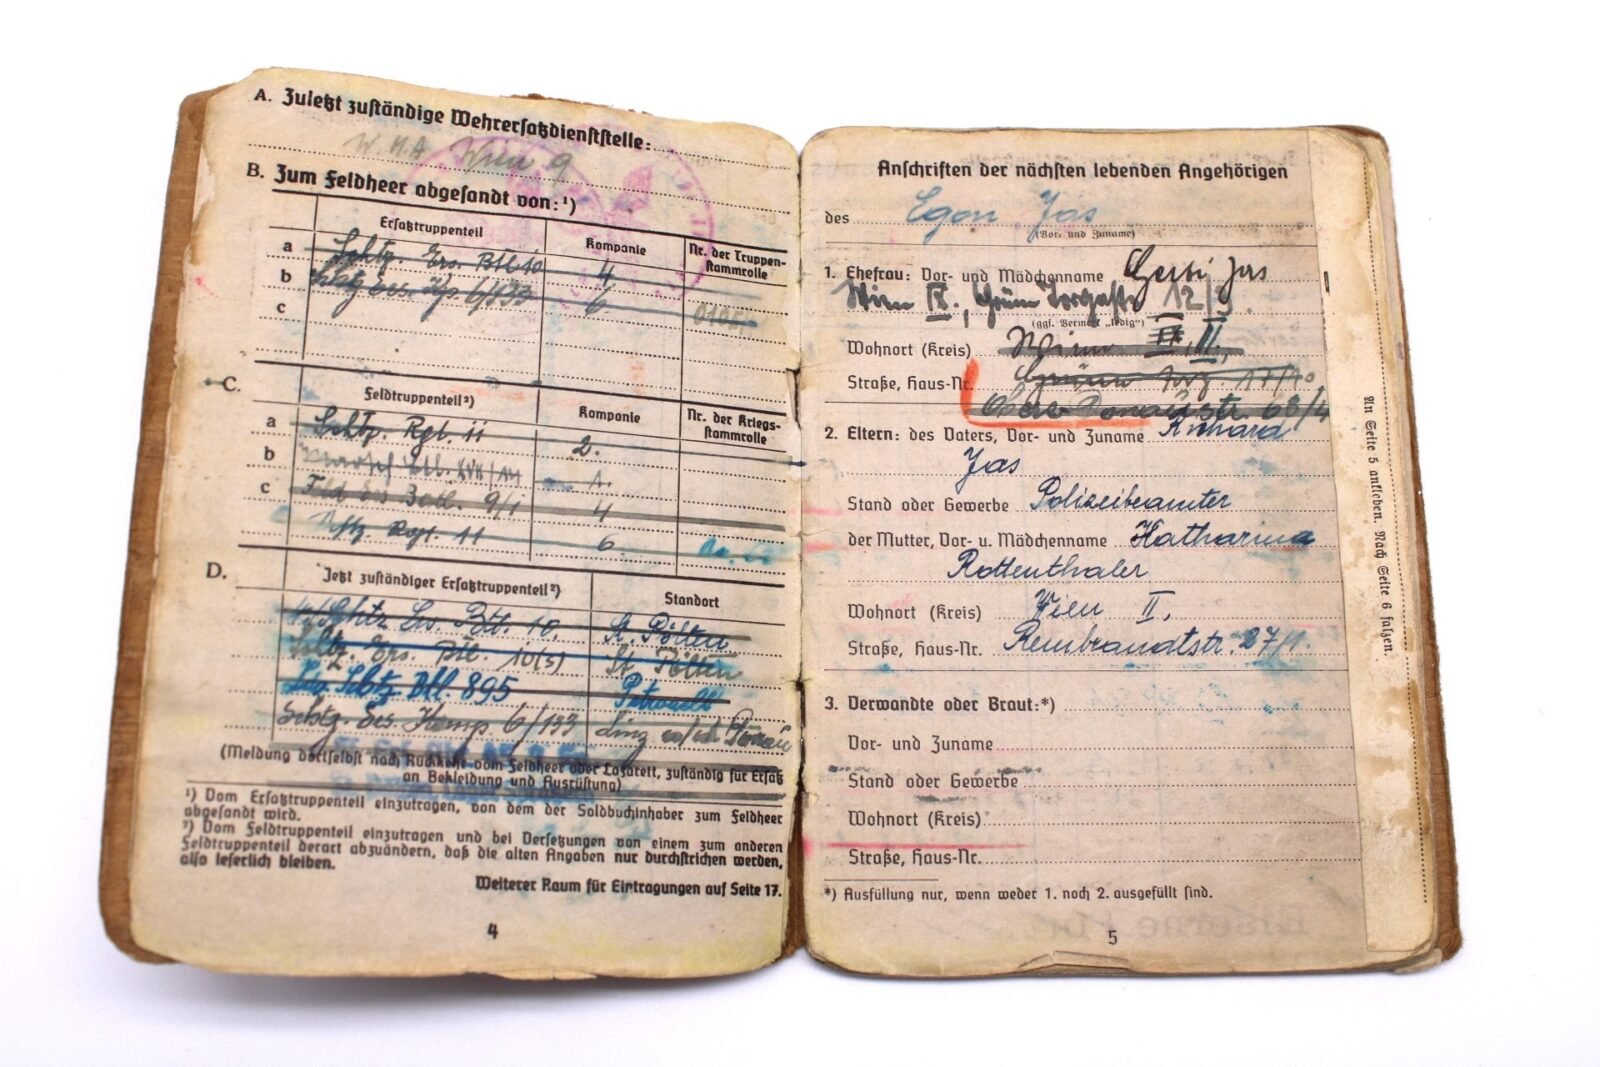 A. Zuletzt zuständige Wehrersatzdienststelle:
W.M.A Wien 9
B. Zum Feldheer abgesandt von:¹)
Ersatztruppenteil Kompanie Nr. der Truppen-stammrolle
a Schtz. Ers. Btl. 10 4
b Ers. Kp. 6/133 6.
c
C. Feldtruppenteil²) Kompanie Nr. der Kriegs-stammrolle
a Schtz. Rgt. 11 2.
b 1.
c Feld 9/I 4
Rgt. 11 6.
D. Jetzt zuständiger Ersatztruppenteil²) Standort
Schtz Ers. Btl. 10. St. Pölten
Schtz. Ers. Btl. 10(s) St. Pölten
Schtz. Btl. 895
6/133 Linz Donau
(Meldung dortselbst nach Rückkehr vom Feldheer oder Lazarett, zuständig für Ersatz
an Bekleidung und Ausrüstung)
¹) Vom Ersatztruppenteil einzutragen, von dem der Soldbuchinhaber zum Feldheer
abgesandt wird.
²) Vom Feldtruppenteil einzutragen und bei Versetzungen von einem zum anderen
Feldtruppenteil derart abzuändern, daß die alten Angaben nur durchstrichen werden,
also leserlich bleiben.
Weiterer Raum für Eintragungen auf Seite 17.
4
Anschriften der nächsten lebenden Angehörigen
des Egon Jas
(Vor- und Zuname)
1. Ehefrau: Vor- und Mädchenname Jas
Wien IX., 12/9
(ggf. Vermerk „ledig“)
Wohnort (Kreis) Wien II,
Straße, Haus-Nr. 17/10
Obere Donaustr. 68/4
2. Eltern: des Vaters, Vor- und Zuname Richard
Jas
Stand oder Gewerbe Polizeibeamter
der Mutter, Vor- u. Mädchenname Katharina
Rottenthaler
Wohnort (Kreis) Wien II.
Straße, Haus-Nr. Rembrandtstr. 27/1.
3. Verwandte oder Braut:*)
Vor- und Zuname
Stand oder Gewerbe
Wohnort (Kreis)
Straße, Haus-Nr.
*) Ausfüllung nur, wenn weder 1. noch 2. ausgefüllt sind.
5
An Seite 5 ankleben. Nach Seite 6 falzen.